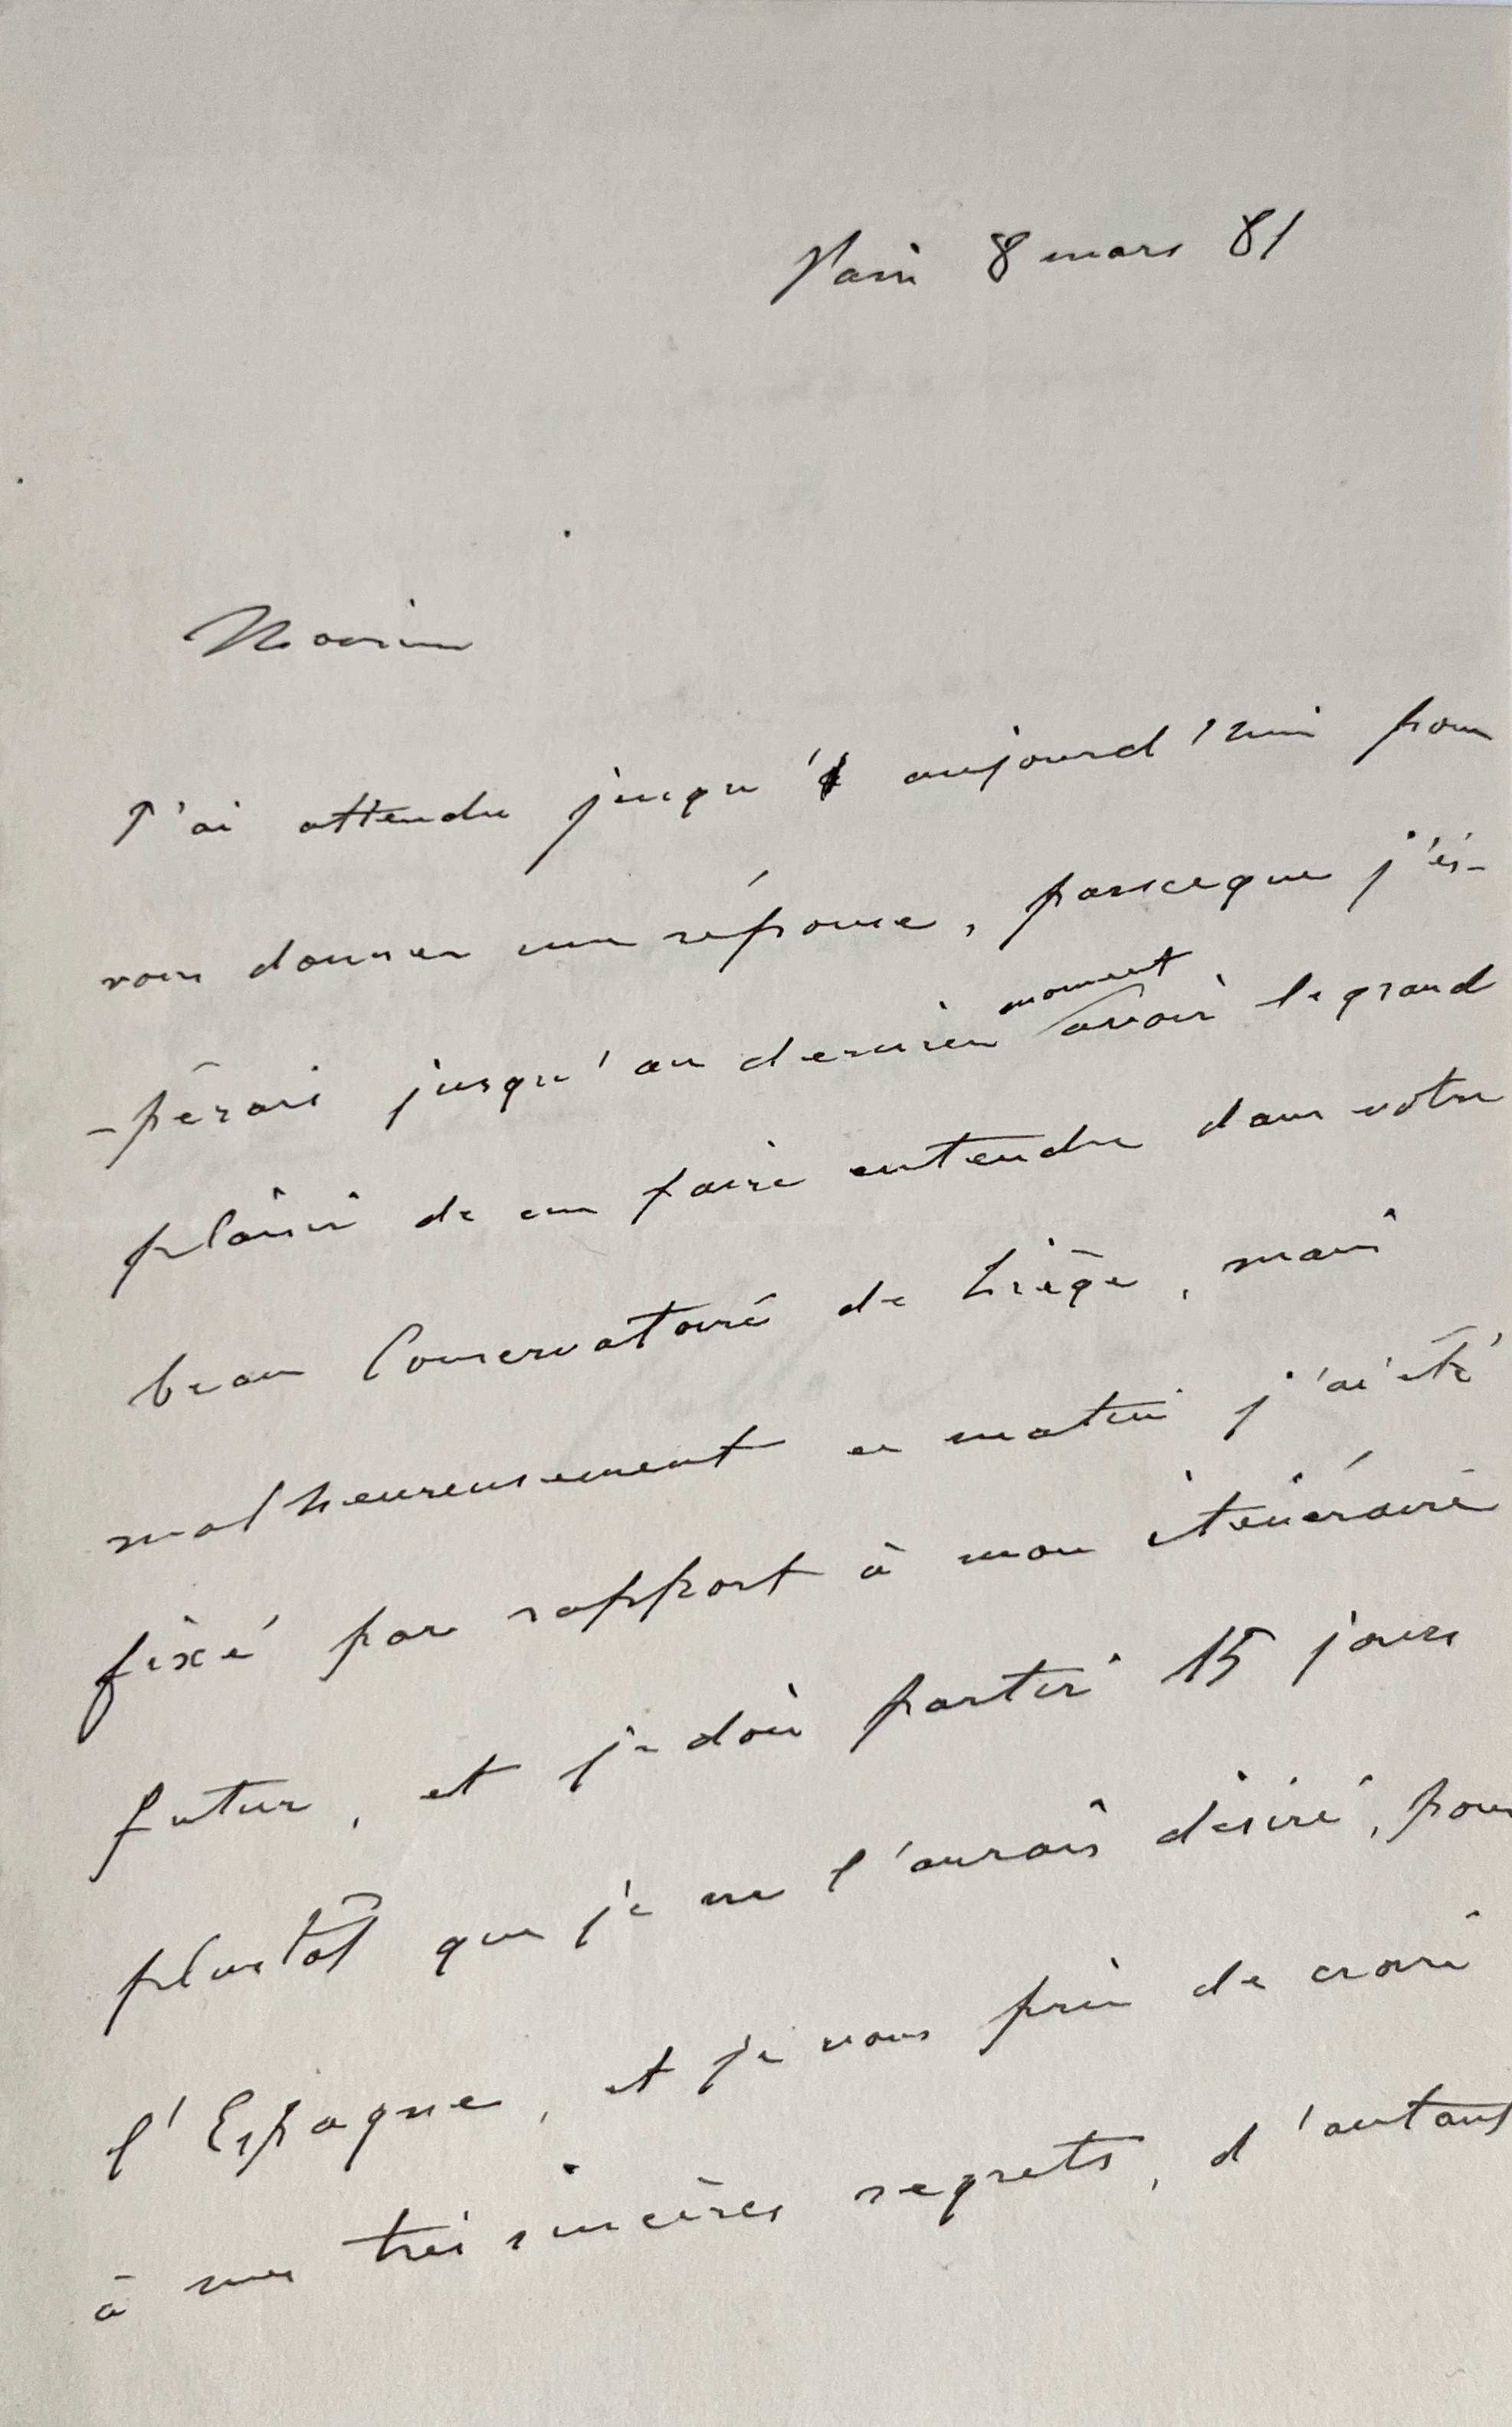 Paris 8 mars 81
Monsieur
J'ai attendu jusqu'à aujourd'hui pour
vous donner une réponse, parceque j'es-
-pérais jusqu'au dernier moment avoir le grand
plaisir de me faire entendre dans votre
beau Conservatoire de Liège, mais
malheureusement ce matin j'ai été
fixé par rapport à mon itinéraire
futur, et je dois partir 15 jours
plustôt que je ne l'aurais désiré, pour
l'Espagne, et je vous prie de croire
à mes très sincères regrets, d'autant